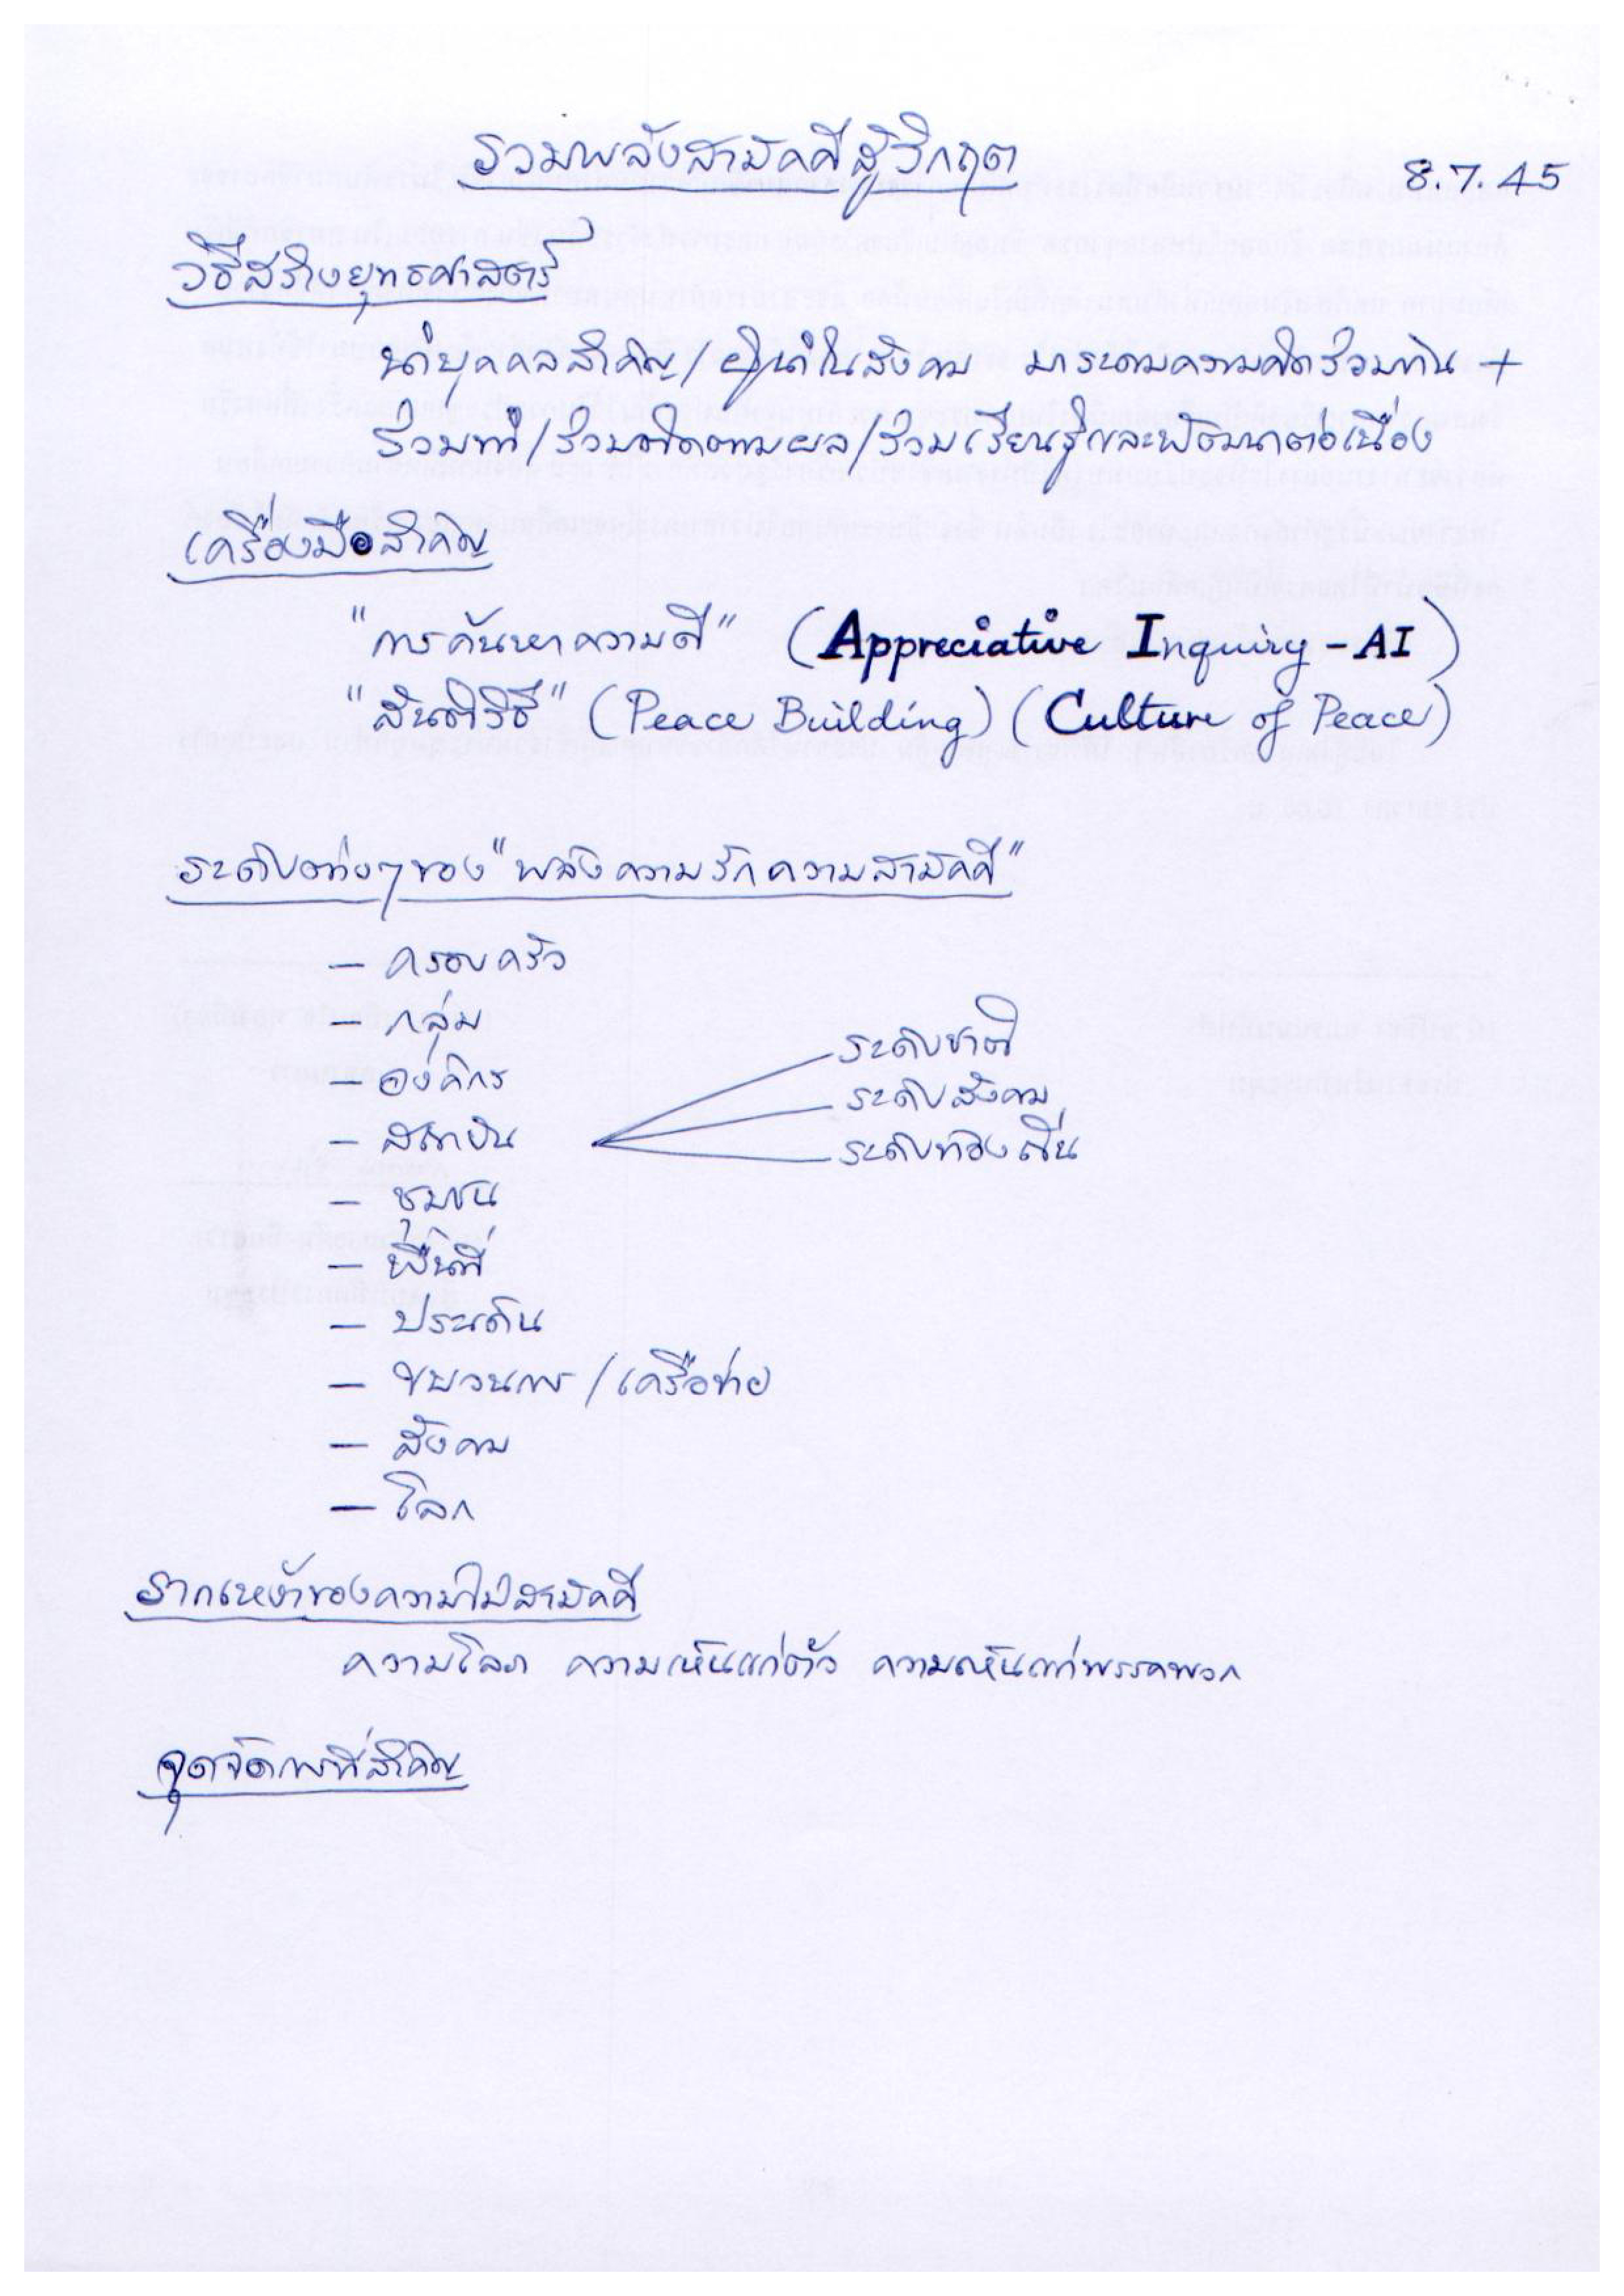 รวมพลังสามัคคีสู้วิกฤต
8.7.45
วิธีสร้างยุทธศาสตร์
นำบุคคลสำคัญ/ผู้นำในสังคม มาระดมความคิดร่วมกัน +
ร่วมทำ/ร่วมติดตามผล/ร่วมเรียนรู้และพัฒนาต่อเนื่อง
เครื่องมือสำคัญ
"การค้นหาความดี" (Appreciative Inquiry - AI)
"สันติวิธี" (Peace Building) (Culture of Peace)
ระดับต่างๆของ "พลังความรักความสามัคคี"
– ครอบครัว
– กลุ่ม
– องค์กร
ระดับชาติ
ระดับสังคม
– สถาบัน
ระดับท้องถิ่น
– ชุมชน
– พื้นที่
– ประเด็น
– ขบวนการ/เครือข่าย
– สังคม
– โลก
รากเหง้าของความไม่สามัคคี
ความโลภ ความเห็นแก่ตัว ความเห็นแก่พรรคพวก
จุดจัดการที่สำคัญ